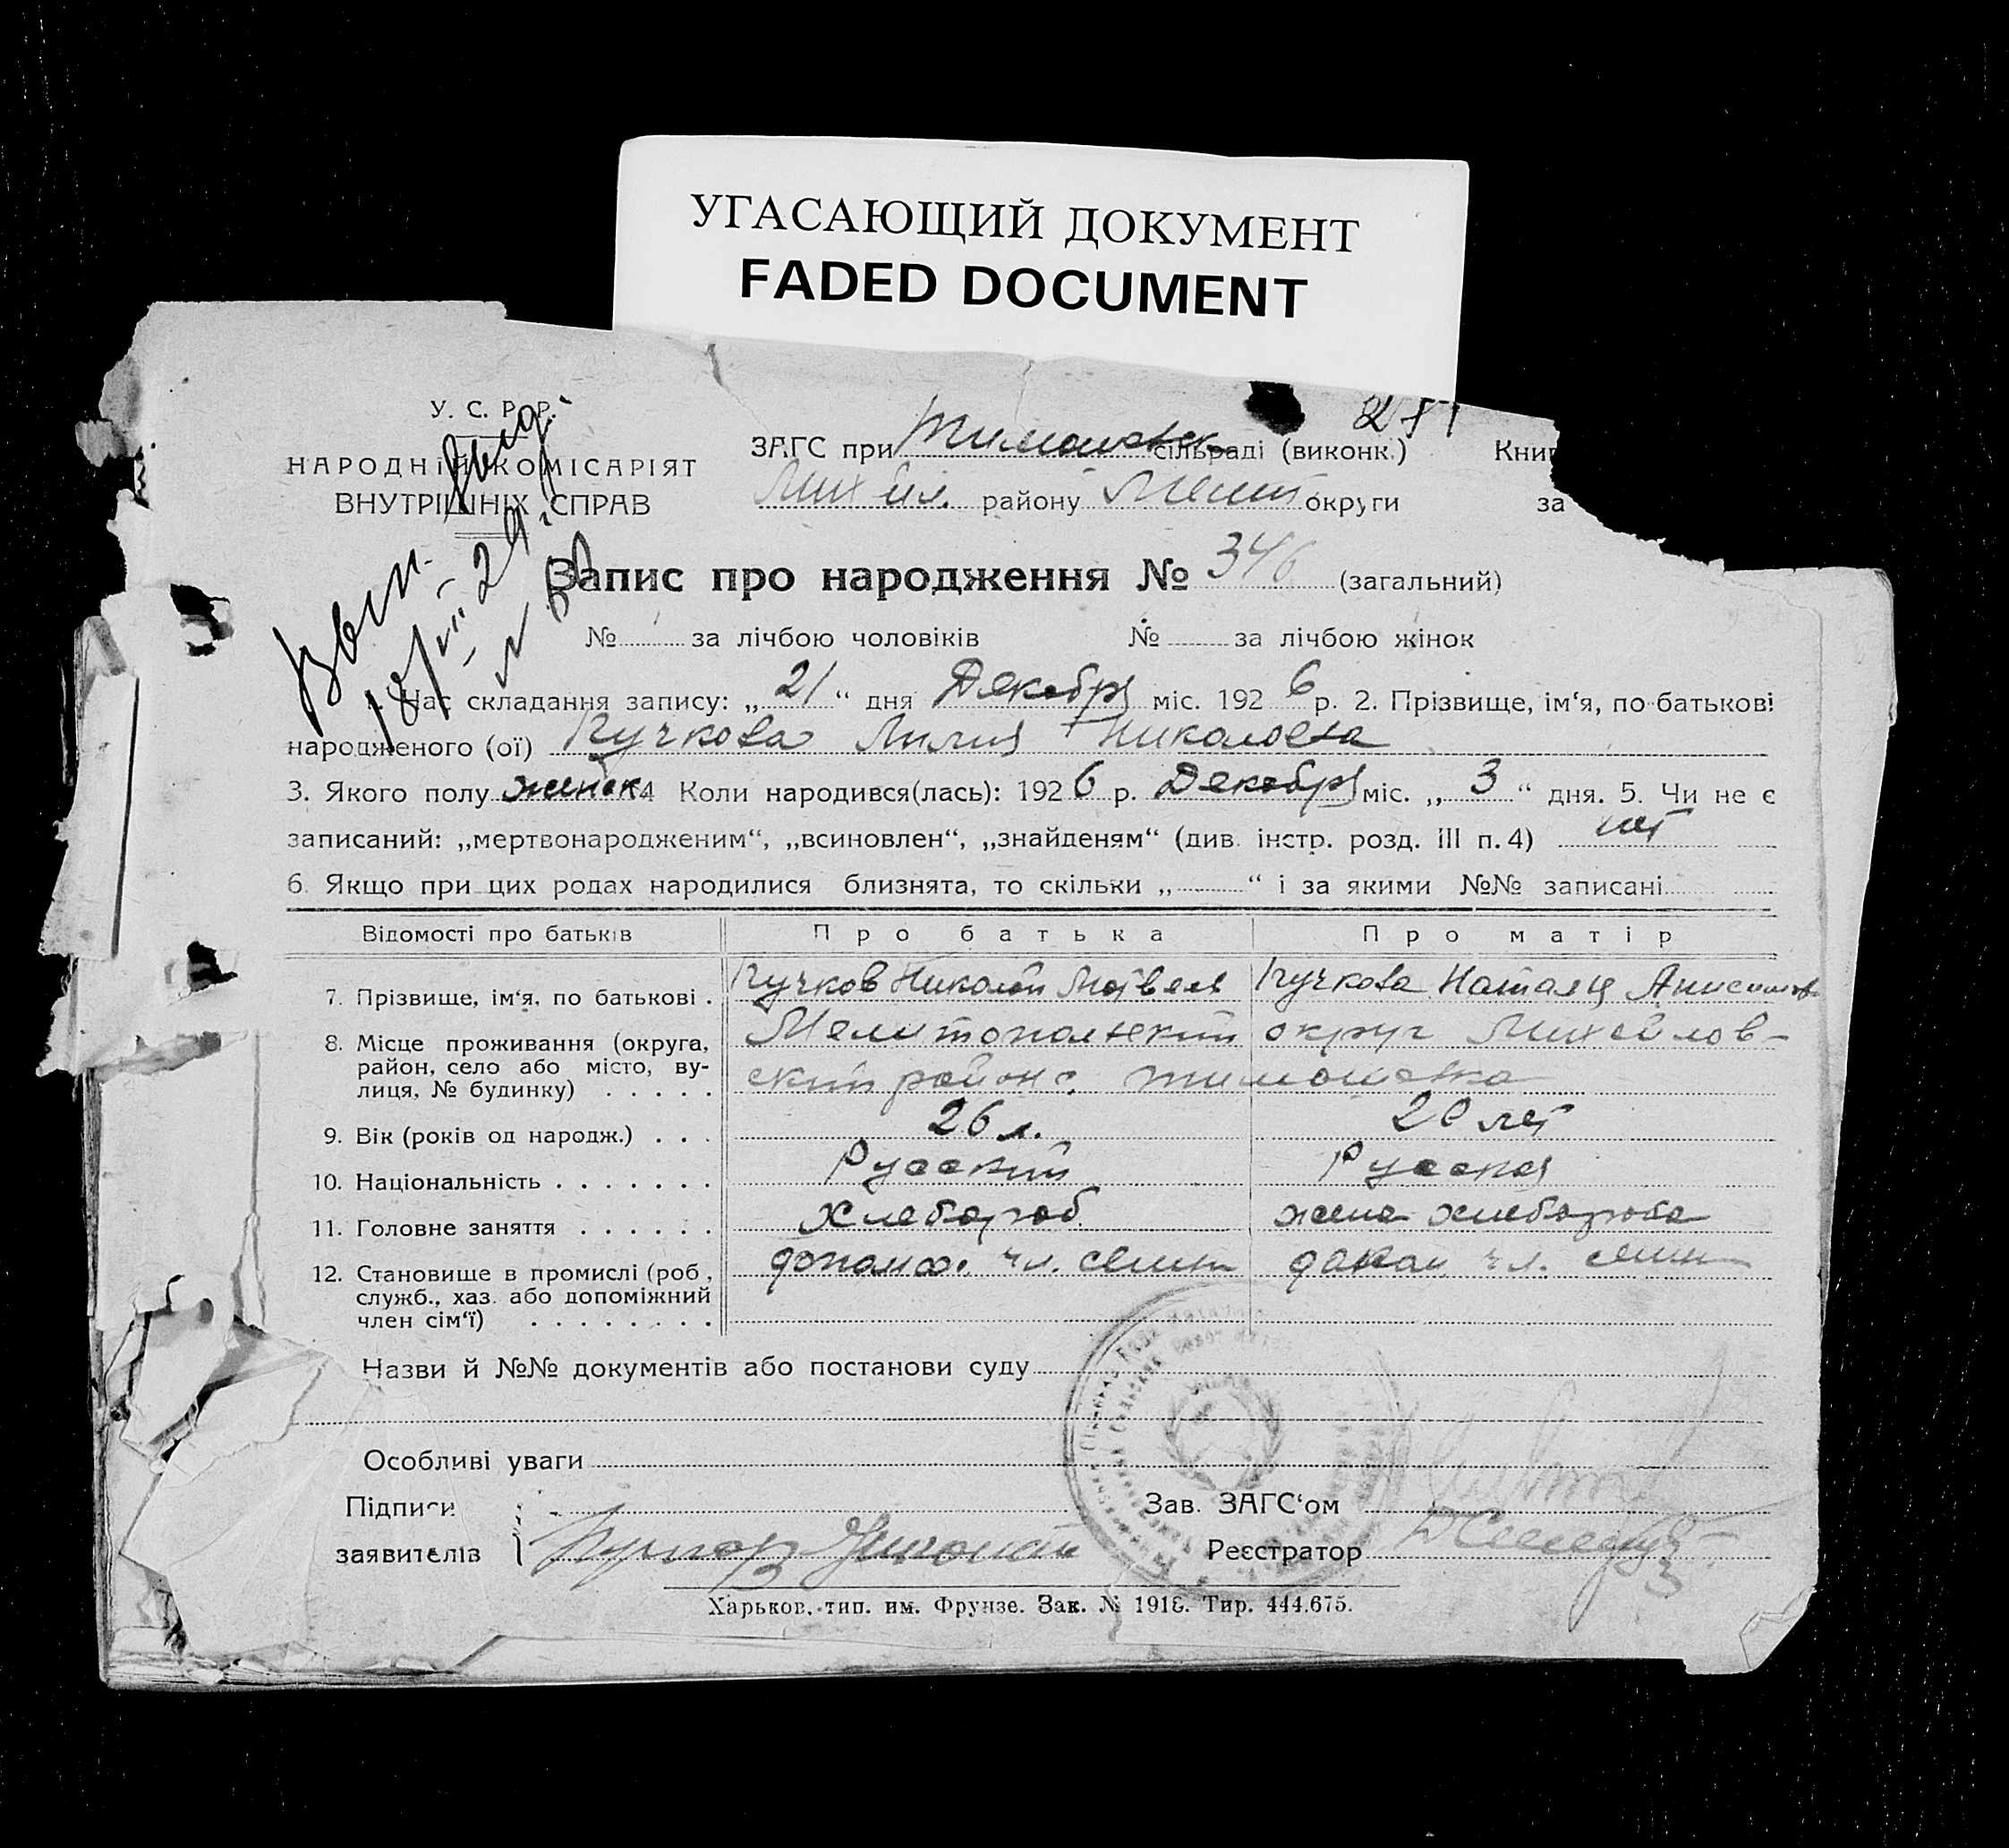 УГАСАЮЩИЙ ДОКУМЕНТ
FADED DOCUMENT
У. С. Р. Р.
НАРОДНІЙ КОМІСАРІЯТ
ВНУТРІШНІХ СПРАВ
ЗАГС при Тимошевск сільраді (виконк.)
Михайл. району Мелит округи
Книг
за
Запис про народження № 346 (загальний)
№ за лічбою чоловіків № за лічбою жінок
Час складання запису: „ 21 “ дня Декабря міс. 192 6 р. 2. Прізвище, ім‘я, по батькові
народженого (ої) Кучкова Лилия Николаевна
3. Якого полу женск. 4 Коли народився(лась): 192 6 р. Декабря міс. „ 3 “ дня. 5. Чи не є
записаний: „мертвонародженим“, „всиновлен“, „знайденям“ (див. інстр. розд. III п. 4) нет
6. Якщо при цих родах народилися близнята, то скільки „ “ і за якими №№ записані
Відомості про батьків Про батька Про матір
7. Прізвище, ім‘я, по батькові . Кучков Николай Кучкова Наталя
8. Місце проживання (округа, район, село або місто, вулиця, № будинку) . . . . . Мелитопольский округ Михайлов-
ский район с. Тимошевка
9. Вік (років од народж.) . . . 26 л. 20 лет
10. Національність . . . . . . . Русский Русская
11. Головне заняття . . . . . . Хлебороб жена хлебороба
12. Становище в промислі (роб., служб., хаз. або допоміжний член сім‘ї) . . . . . . . . чл. семи чл. семи
Назви й №№ документів або постанови суду
Особливі уваги
Підписи
заявителів
Зав. ЗАГС‘ом
Реєстратор
Харьков, тип. им. Фрунзе. Зак. № 1918. Тир. 444.675.